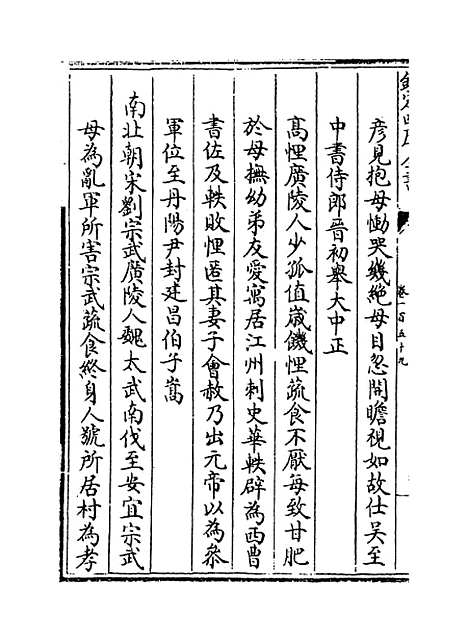 欽定四庫全書
卷一百五十九
彦見抱母慟哭幾絶母目忽開瞻視如故仕吴至
中書侍郎晉初舉大中正
髙悝廣陵人少孤值嵗饑悝蔬食不厭每致甘肥
於母撫幼弟友愛寓居江州刺史華軼辟為西曹
書佐及軼敗悝匿其妻子會赦乃出元帝以為叅
軍位至丹陽尹封建昌伯子嵩
南北朝宋劉宗武廣陵人魏太武南伐至安宜宗武
母為亂軍所害宗武蔬食終身人號所居村為孝